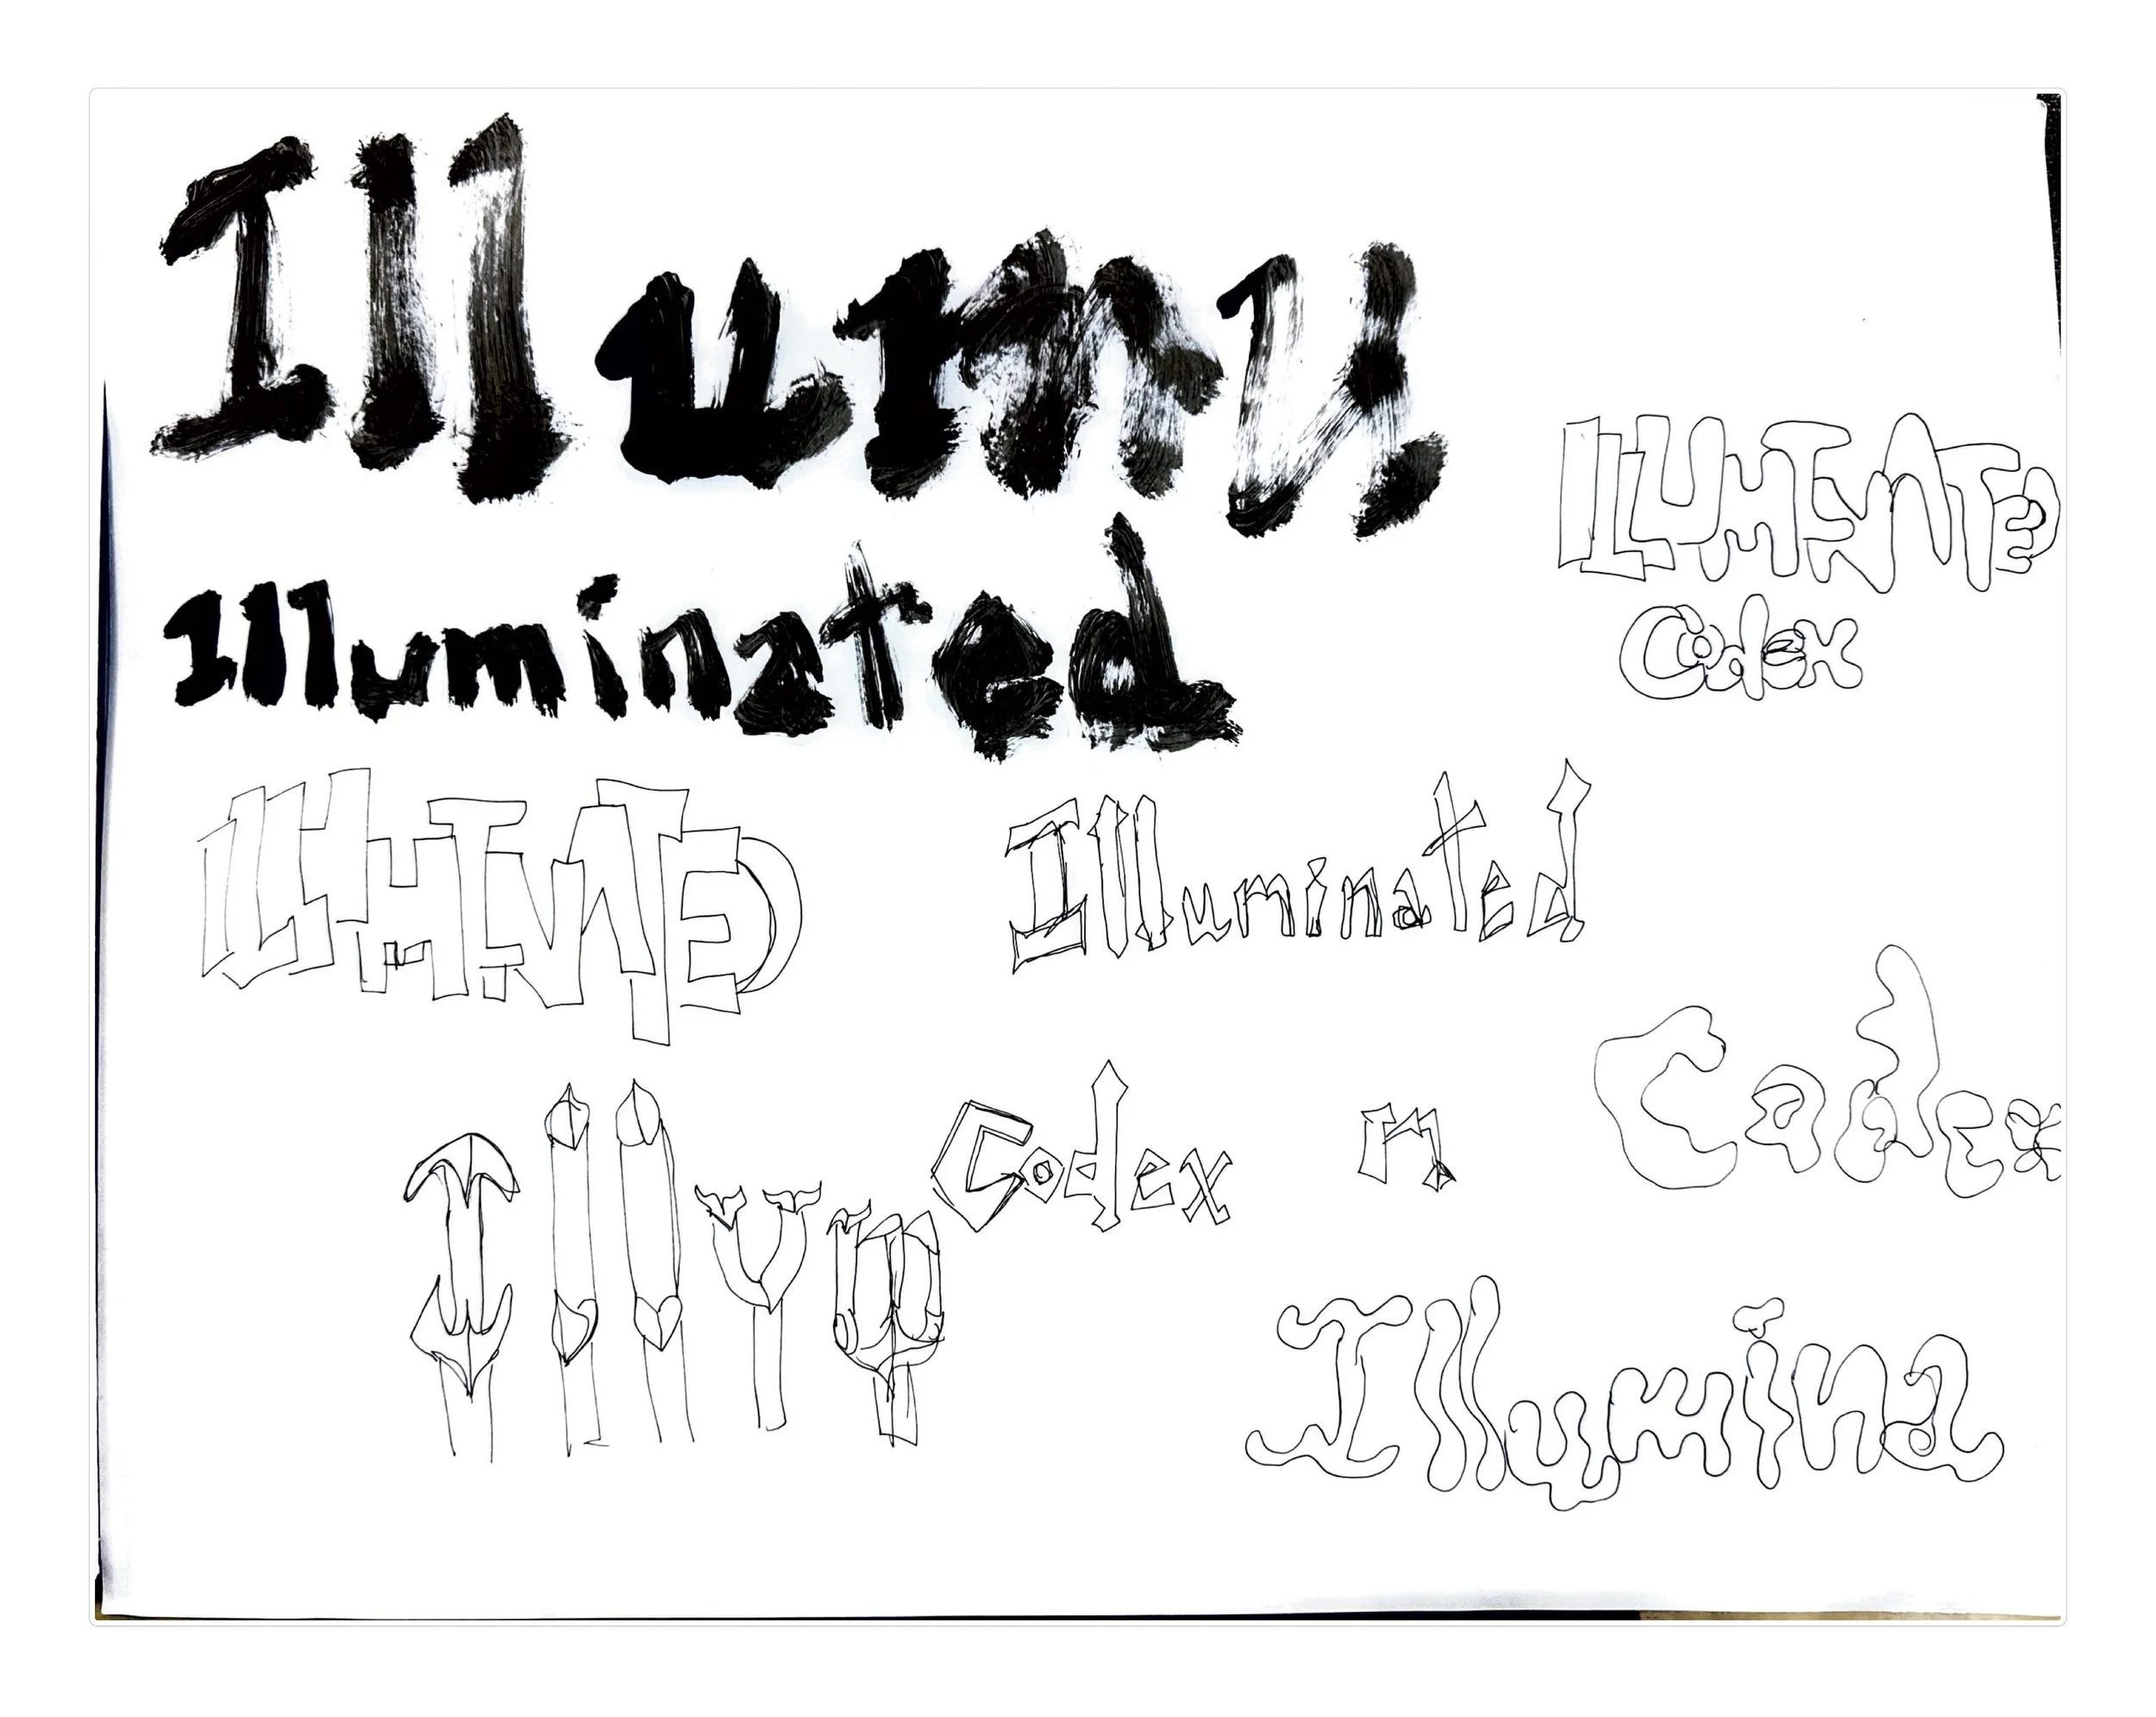 Illumn
Illuminated
ILLUMINATED
Codex
ILLUMINATED
Illuminated
Codex
Illum
Codex
m
Illumina